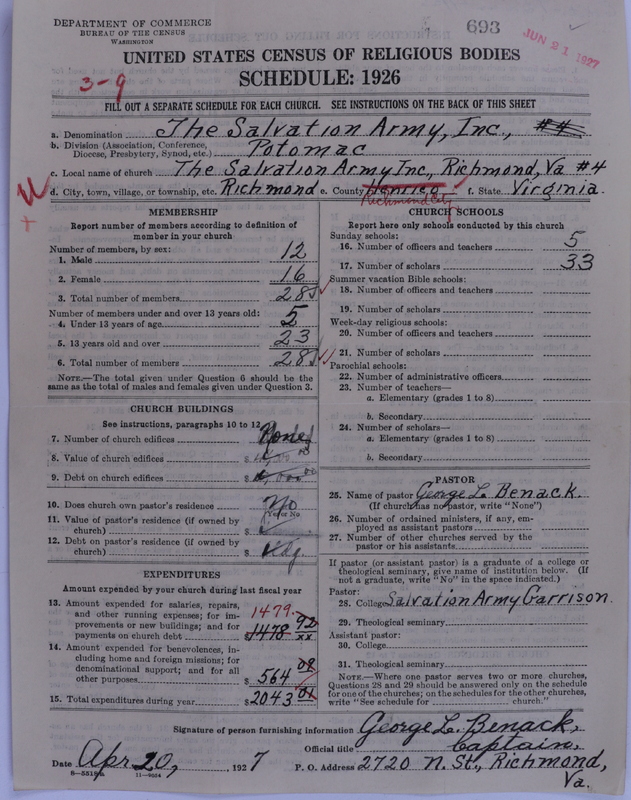 DEPARTMENT OF COMMERCE
BUREAU OF THE CENSUS
WASHINGTON
693
JUN 21 1927
UNITED STATES CENSUS OF RELIGIOUS BODIES
SCHEDULE: 1926
3-9
FILL OUT A SEPARATE SCHEDULE FOR EACH CHURCH. SEE INSTRUCTIONS ON THE BACK OF THIS SHEET
a. Denomination The Salvation Army, Inc.,
b. Division (Association, Conference, Diocese, Presbytery, Synod, etc.) Potomac
c. Local name of church The Salvation Army Inc., Richmond, Va #4
d. City, town, village, or township, etc. Richmond e. County Henrico f. State Virginia.
Richmond City
MEMBERSHIP
Report number of members according to definition of
member in your church
Number of members, by sex:
1. Male 12
2. Female 16
3. Total number of members 28
Number of members under and over 13 years old:
4. Under 13 years of age 5
5. 13 years old and over 23
6. Total number of members 28
NOTE.—The total given under Question 6 should be the
same as the total of males and females given under Question 3.
CHURCH BUILDINGS
See instructions, paragraphs 10 to 12
7. Number of church edifices
8. Value of church edifices $
9. Debt on church edifices $
10. Does church own pastor's residence No
Yes or No
11. Value of pastor's residence (if owned by
church) $
12. Debt on pastor's residence (if owned by
church) $
EXPENDITURES
Amount expended by your church during last fiscal year
13. Amount expended for salaries, repairs,
and other running expenses; for im-
provements or new buildings; and for
payments on church debt $ 1478 92
1479.
xx
14. Amount expended for benevolences, in-
cluding home and foreign missions; for
denominational support; and for all
other purposes $ 564 09
15. Total expenditures during year $ 2043 01
CHURCH SCHOOLS
Report here only schools conducted by this church
Sunday schools:
16. Number of officers and teachers 5
17. Number of scholars 33
Summer vacation Bible schools:
18. Number of officers and teachers
19. Number of scholars
Week-day religious schools:
20. Number of officers and teachers
21. Number of scholars
Parochial schools:
22. Number of administrative officers
23. Number of teachers—
a. Elementary (grades 1 to 8)
b. Secondary
24. Number of scholars—
a. Elementary (grades 1 to 8)
b. Secondary
PASTOR
25. Name of pastor George L. Benack.
(If church has no pastor, write "None")
26. Number of ordained ministers, if any, em-
ployed as assistant pastors
27. Number of other churches served by the
pastor or his assistants
If pastor (or assistant pastor) is a graduate of a college or
theological seminary, give name of institution below. (If
not a graduate, write "No" in the space indicated.)
Pastor:
28. College Salvation Army Garrison.
29. Theological seminary
Assistant pastor:
30. College
31. Theological seminary
NOTE.—Where one pastor serves two or more churches,
Questions 28 and 29 should be answered only on the schedule
for one of the churches; on the schedules for the other churches,
write "See schedule for church."
Signature of person furnishing information George L. Benack,
Official title Captain,
Date Apr 20, 1927 P. O. Address 2720 N. St., Richmond,
8-5518a 11-9664 Va.